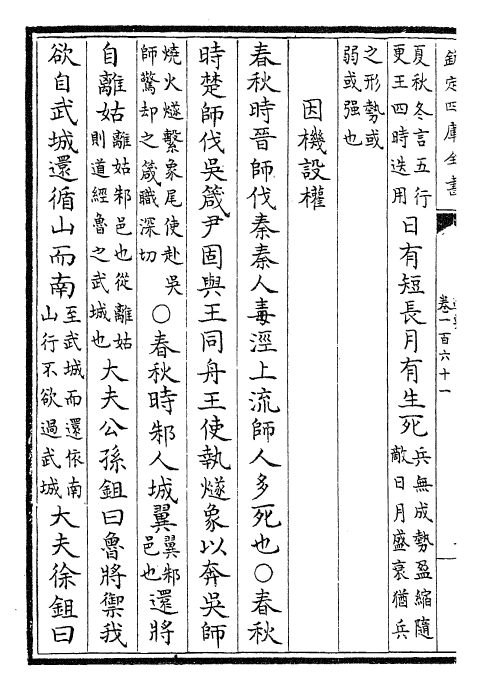 欽定四庫全書
卷一百六十一
夏秋冬言五行
更王四時迭用
日有短長月有生死
兵無成勢盈縮隨
敵日月盛衰猶兵
之形勢或
弱或强也
因機設權
春秋時晉師伐秦秦人毒涇上流師人多死也○春秋
時楚師伐吳箴尹固與王同舟王使執燧象以奔吳師
燒火燧繫象尾使赴吳
師驚却之箴職深切
○春秋時邾人城翼
翼邾
邑也
還將
自離姑
離姑邾邑也從離姑
則道經魯之武城也
大夫公孫鉏曰魯將禦我
欲自武城還循山而南
至武城而還依南
山行不欲過武城
大夫徐鉏曰